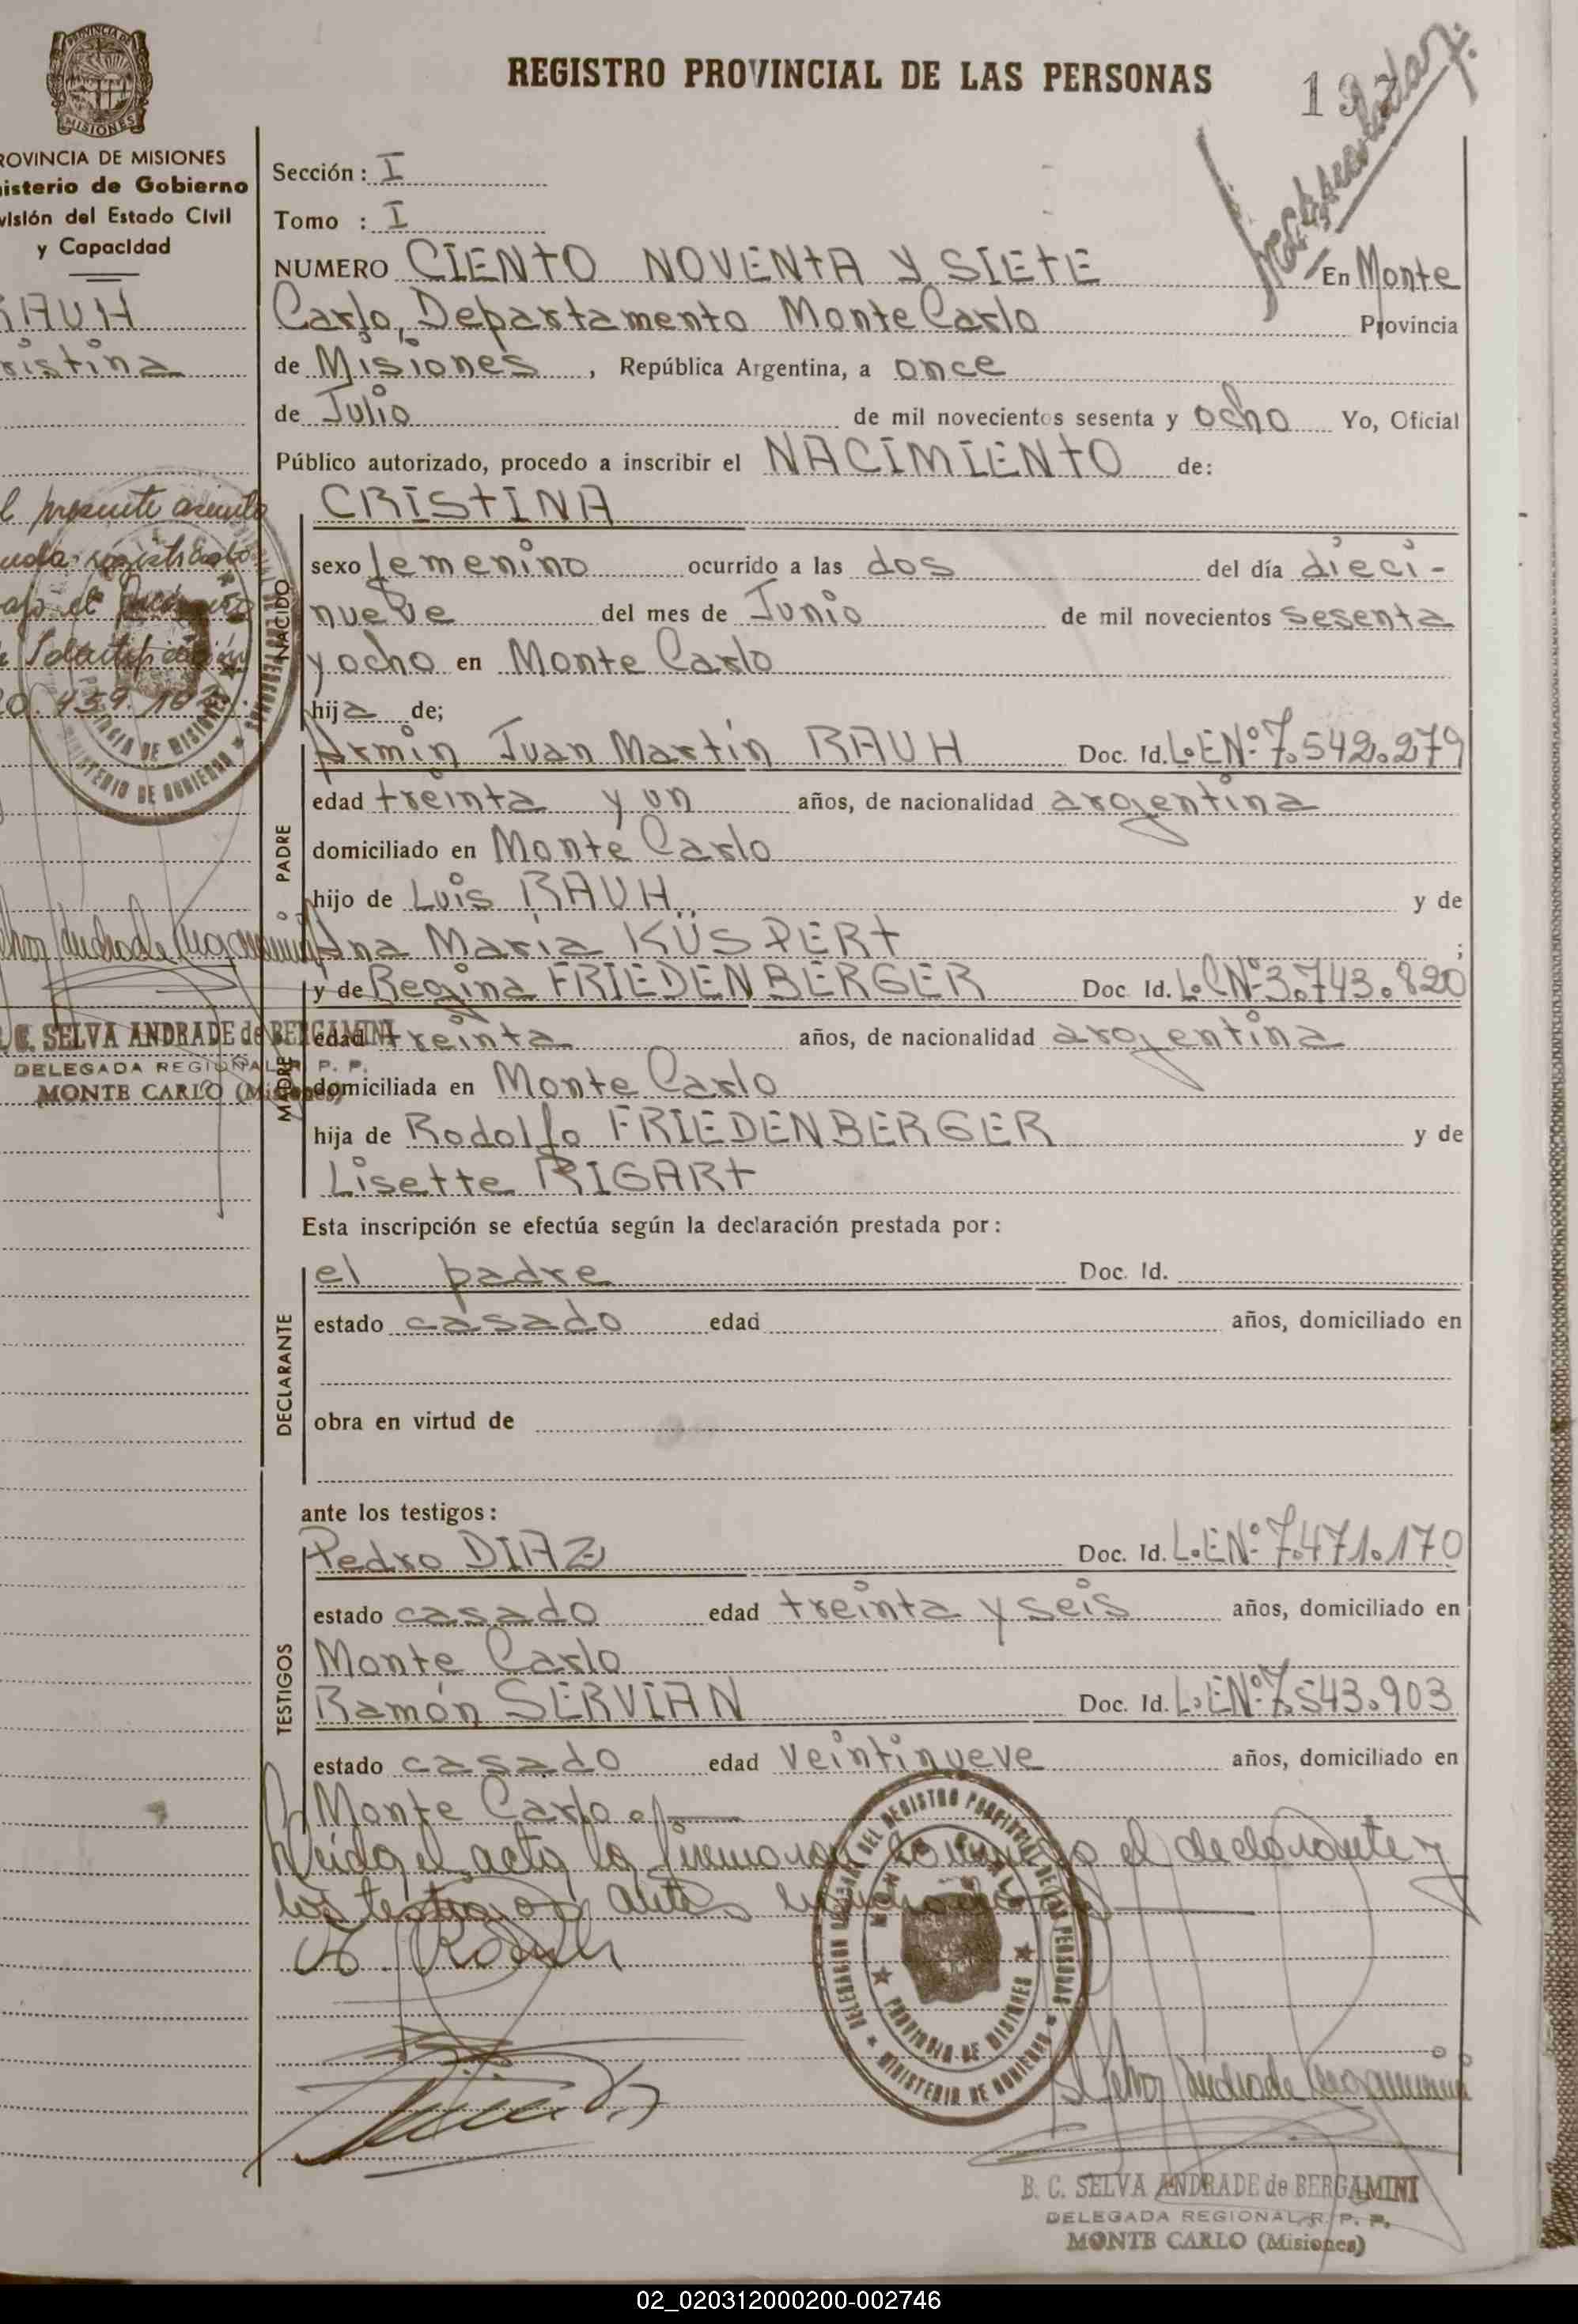 REGISTRO PROVINCIAL DE LAS PERSONAS
197
MISIONES
ROVINCIA DE MISIONES
isterio de Gobierno
visión del Estado Civil
y Capacidad
RAUH
ristina
l presente asiento
bajo el
439.10
C. SELVA ANDRADE de BERGAMINI
DELEGADA REGIONAL R. P. P.
MONTE CARLO (Misiones)
Sección: I
Tomo : I
NUMERO CIENTO NOVENTA Y SIETE En Monte
Carlo, Departamento Monte Carlo Provincia
de Misiones, República Argentina, a once
de Julio de mil novecientos sesenta y ocho Yo, Oficial
Público autorizado, procedo a inscribir el NACIMIENTO de:
NACIDO
CRISTINA
sexo femenino ocurrido a las dos del día dieci-
nueve del mes de Junio de mil novecientos sesenta
y ocho en Monte Carlo
hija de;
PADRE
Armin Juan Martín RAUH Doc. Id. L.EN° 7.542.279
edad treinta y un años, de nacionalidad argentina
domiciliado en Monte Carlo
hijo de Luis RAUH y de
Ana María KÜSPERT ;
MADRE
y de Regina FRIEDENBERGER Doc. Id. L.CN° 3.743.820
edad treinta años, de nacionalidad argentina
domiciliada en Monte Carlo
hija de Rodolfo FRIEDENBERGER y de
Lisette RIGART
Esta inscripción se efectúa según la declaración prestada por:
DECLARANTE
el padre Doc. Id.
estado casado edad años, domiciliado en
obra en virtud de
ante los testigos:
TESTIGOS
Pedro DIAZ Doc. Id. L.EN° 7.471.170
estado casado edad treinta y seis años, domiciliado en
Monte Carlo
Ramón SERVIAN Doc. Id. L.EN° 7.543.903
estado casado edad veintinueve años, domiciliado en
Monte Carlo
Leída el acta la firmaron conmigo el declarante y
los testigos antes
DELEGACION DEL REGISTRO PROVINCIAL DE LAS PERSONAS
MONTE CARLO
PROVINCIA DE MISIONES
MINISTERIO DE GOBIERNO
B. C. SELVA ANDRADE de BERGAMINI
DELEGADA REGIONAL R. P. P.
MONTE CARLO (Misiones)
02_020312000200-002746